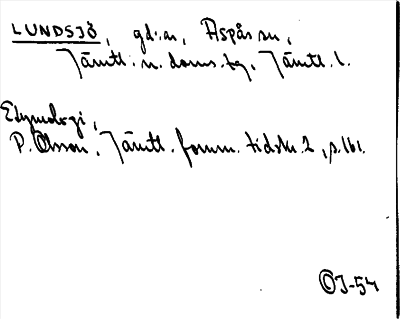 LUNDSJÖ, gd:ar, Aspås sn,
Jämtl. n. doms.tg, Jämtl. l.
Etymologi,
P. Olsson, Jämtl. fornm. tidskr. 2, s. 161.
OJ-54